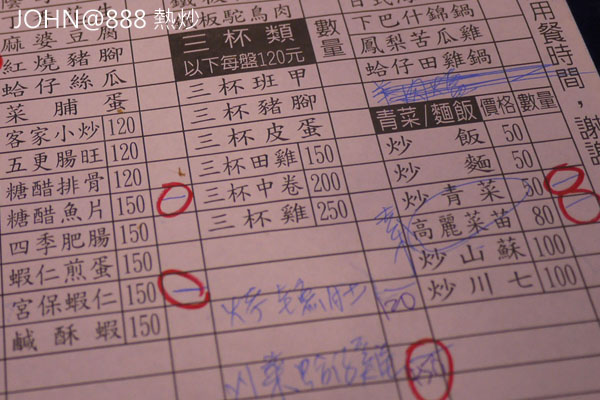 JOHN@888 熱炒
麻婆豆腐
紅燒豬腳
蛤仔絲瓜
菜脯蛋
客家小炒 120
五更腸旺 120
糖醋排骨 120
糖醋魚片 150
四季肥腸 150
蝦仁煎蛋 150
宮保蝦仁 150
鹹酥蝦 150
板駝鳥肉
三杯類 數量
以下每盤120元
三杯班甲
三杯豬腳
三杯皮蛋
三杯田雞 150
三杯中卷 200
三杯雞 250
下巴什錦鍋
鳳梨苦瓜雞
蛤仔田雞鍋
青菜/麵飯 價格 數量
炒飯 50
炒麵 50
炒青菜 50
高麗菜苗 80
炒山蘇 100
炒川七 100
用餐時間,謝謝